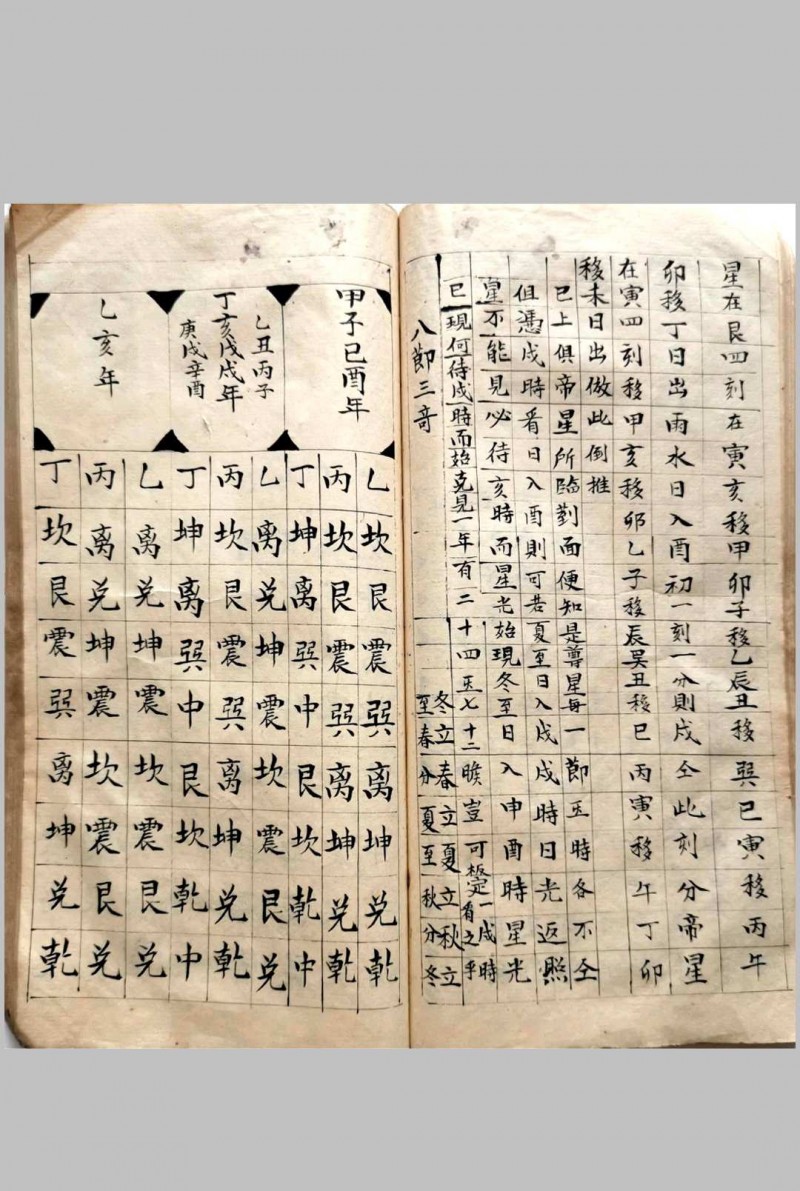 星在艮四刻在寅亥移甲卯子移乙辰丑移巽巳寅移丙午
卯移丁日出雨水日入酉初一刻一分則戍仝此刻分帝星
在寅四刻移甲亥移卯乙子移辰巽丑移巳丙寅移午丁卯
移未日出倣此倒推
已上俱帝星所臨對面便知是尊星每一節五時各不仝
但憑戍時看日入酉則可若夏至日入戍戍時日光返照
星不能見必待亥時而星光始現冬至日入申酉時星光
已現何待戍時而始克見一年有二十四五七十二候豈可板定一戍時看之乎
八節三奇 冬至 立春 春分 立夏 夏至 立秋 秋分 立冬
甲子己酉年
乙丑丙子
丁亥戊戌年
庚戌辛酉
乙亥年
乙坎艮震巽离坤兑乾
丙坎艮震巽离坤兑乾
丁坤离巽中艮坎乾中
乙离兑坤震坎震艮兑
丙坎艮震巽离坤兑乾
丁坤离巽中艮坎乾中
乙离兑坤震坎震艮兑
丙离兑坤震坎震艮兑
丁坎艮震巽离坤兑乾